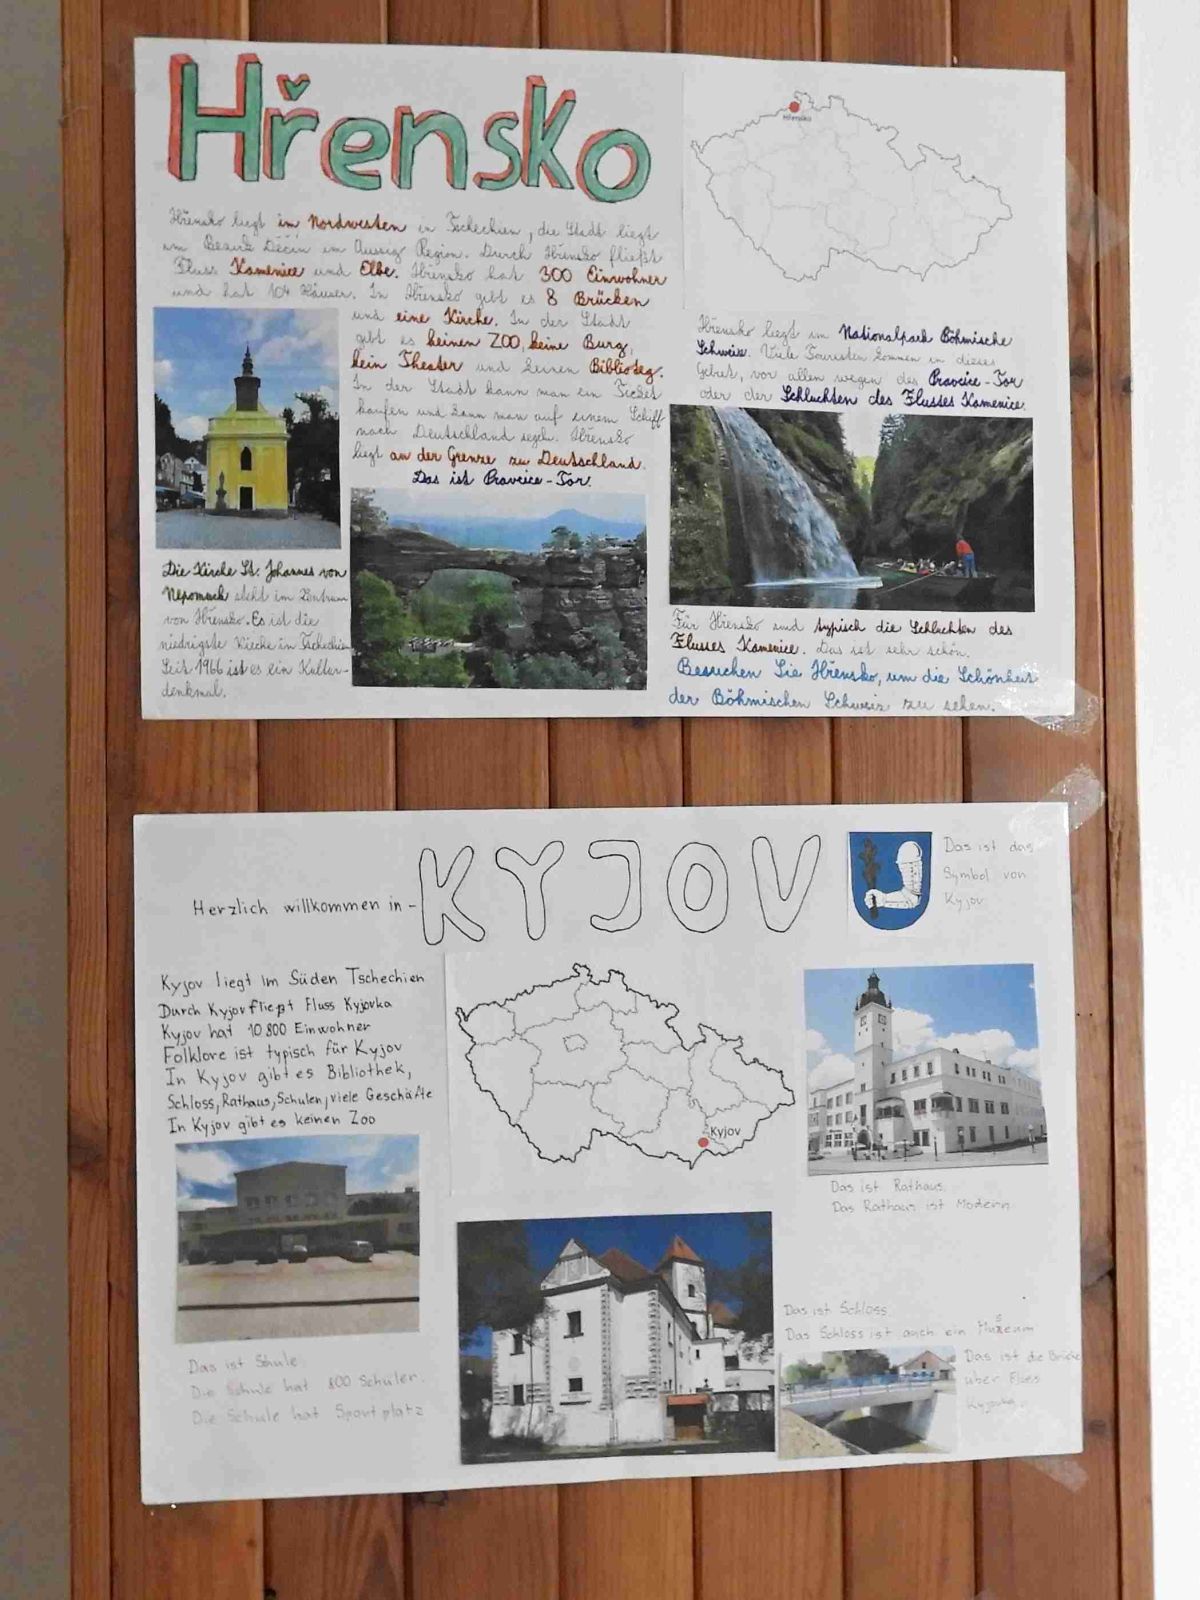 Hřensko
Hřensko
Hřensko liegt im Nordwesten in Tschechien, die Stadt liegt
am Bezirk Děčín im Aussig Region. Durch Hřensko fließt
Fluss Kamenice und Elbe. Hřensko hat 300 Einwohner
und hat 104 Häuser. In Hřensko gibt es 8 Brücken
und eine Kirche. In der Stadt
gibt es keinen ZOO, keine Burg,
kein Theater und keinen Biblioteg.
In der Stadt kann man ein Ticket
kaufen und kann man auf einem Schiff
nach Deutschland segeln. Hřensko
liegt an der Grenze zu Deutschland.
Das ist Pravcice-Tor.
Die Kirche St. Johannes von
Nepomuck steht im Zentrum
von Hřensko. Es ist die
niedrigste Kirche in Tschechien
Seit 1966 ist es ein Kultur-
denkmal.
Hřensko liegt im Nationalpark Böhmische
Schweiz. Viele Touristen kommen in dieses
Gebiet, vor allen wegen des Pravcice-Tor
oder der Schluchten des Flusses Kamenice.
Für Hřensko sind typisch die Schluchten des
Flusses Kamenice. Das ist sehr schön.
Besuchen Sie Hřensko, um die Schönheit
der Böhmischen Schweiz zu sehen.
Herzlich willkommen in - KYJOV
Das ist das
Symbol von
Kyjov
Kyjov liegt im Süden Tschechien
Durch Kyjov fließt Fluss Kyjovka
Kyjov hat 10 800 Einwohner
Folklore ist typisch für Kyjov
In Kyjov gibt es Bibliothek,
Schloss, Rathaus, Schulen, viele Geschäfte
In Kyjov gibt es keinen Zoo
Kyjov
Das ist Rathaus.
Das Rathaus ist Modern
Das ist Schule.
Die Schule hat 800 Schüler.
Die Schule hat Sportplatz
Das ist Schloss.
Das Schloss ist auch ein Museum
Das ist die Brücke
über Flues
Kyjovka.